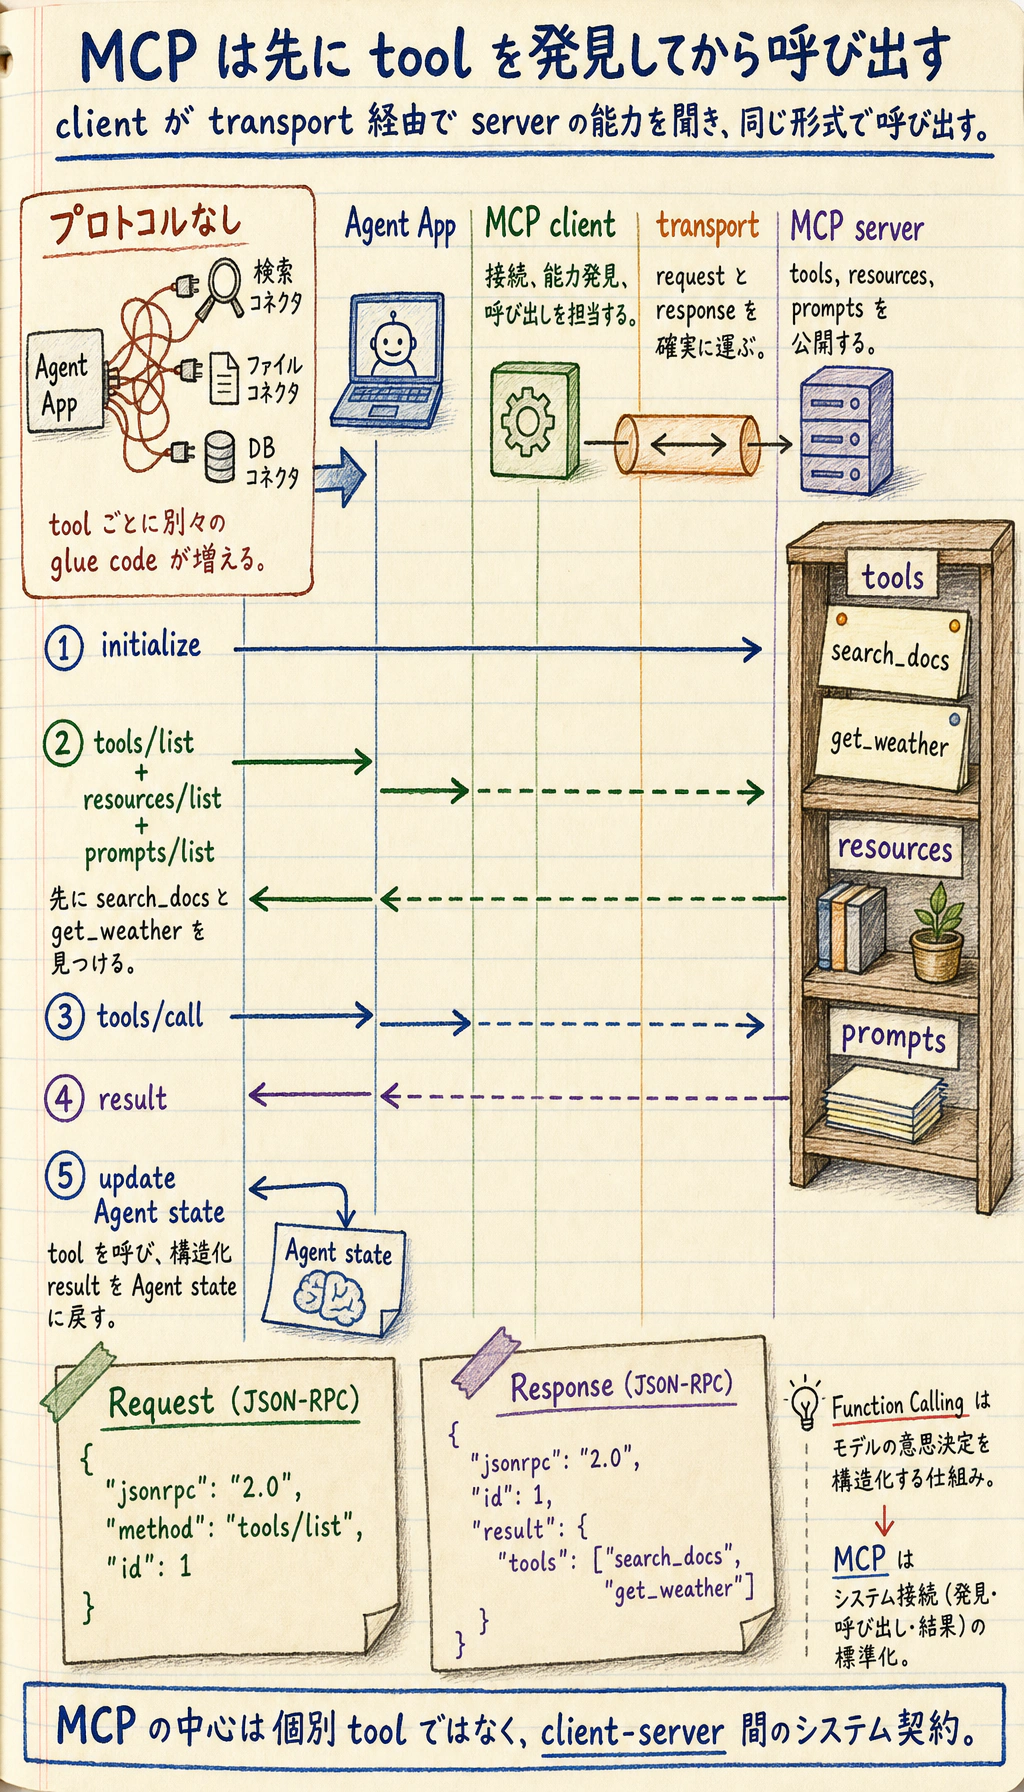 MCP は先に tool を発見してから呼び出す
client が transport 経由で server の能力を聞き、同じ形式で呼び出す。
プロトコルなし
検索
コネクタ
Agent
App
ファイル
コネクタ
DB
コネクタ
tool ごとに別々の
glue code が増える。
Agent App
MCP client
接続、能力発見、
呼び出しを担当する。
transport
request と
response を
確実に運ぶ。
MCP server
tools, resources,
prompts を
公開する。
tools
search_docs
get_weather
resources
prompts
① initialize
② tools/list
+
resources/list
+
prompts/list
先に search_docs と
get_weather を
見つける。
③ tools/call
④ result
⑤ update
Agent state
tool を呼び、構造化
result を Agent state
に戻す。
Agent state
Request (JSON-RPC)
{
"jsonrpc": "2.0",
"method": "tools/list",
"id": 1
}
Response (JSON-RPC)
{
"jsonrpc": "2.0",
"id": 1,
"result": {
"tools": ["search_docs",
"get_weather"]
}
}
Function Calling は
モデルの意思決定を
構造化する仕組み。
MCP は
システム接続 (発見・
呼び出し・結果) の
標準化。
MCP の中心は個別 tool ではなく、client-server 間のシステム契約。